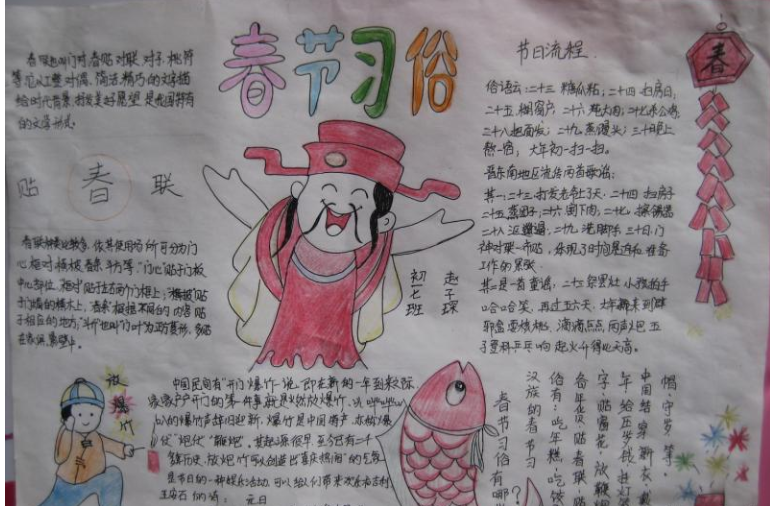 春节习俗
春联也叫门对、春贴、对联、对子、桃符
等,它以工整、对偶、简洁、精巧的文字描
绘时代背景,抒发美好愿望,是我国特有
的文学形式。
贴 春 联
春联种类比较多,依其使用场所,可分为门
心、框对、横披、春条、斗方等。“门心”贴于门板
中心部位,“框对”贴于左右两个门框上,“横披”贴
于门楣的横木上,“春条”根据不同的内容贴
于相应的地方,“斗斤”也叫“门叶”,为正方菱形,多贴
在家俱、影壁中。
节日流程
俗语云:二十三糖瓜粘;二十四扫房日;
二十五糊窗户;二十六炖大肉;二十七杀公鸡
二十八把面发;二十九蒸馒头;三十晚上
熬一宿;大年初一扭一扭。
晋东南地区流传两首歌谣:
其一:二十三打发老爷上了天;二十四扫房子
二十五蒸团子;二十六割下肉;
二十九洗脚手;三十日门
工作的紧张。
其二是一首童谣,二十三祭罢灶,小孩拍手
哈哈笑。再过五六天,大年就来到
滴滴点点两声炮。五
子登科乒乓响,起火升得比天高。
赵子琛
初七班
放爆竹
中国民间有“开门爆竹”一说。即在新的一年到来之际,
家家户户开门的第一件事就是燃放爆竹,以
的爆竹声辞旧迎新。爆竹是中国特产,亦称“爆
仗”、“炮仗”、“鞭炮”。其起源很早,至今已有二千
多年历史。放炮竹可以创造出喜庆热闹的气氛,
是节日的一种娱乐活动,可以给人们带来欢乐和吉利
王安石的诗:元日
春节习俗有哪些?
汉族的春节习
俗有:吃年糕、吃饺
各家各户贴春联、贴
字、贴窗花、放鞭炮
年给压岁钱、逛灯
中国结、穿新衣、戴
帽、守岁等。
春